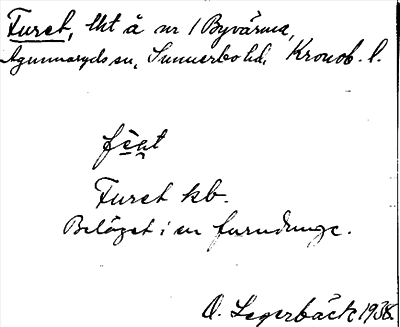 Furet, lht å nr 1 Byvärma,
Agunnaryds sn, Sunnerbo hd, Kronob. l.
Furet kb.
Beläget i en furudunge.
O. Segerbäck 1938.